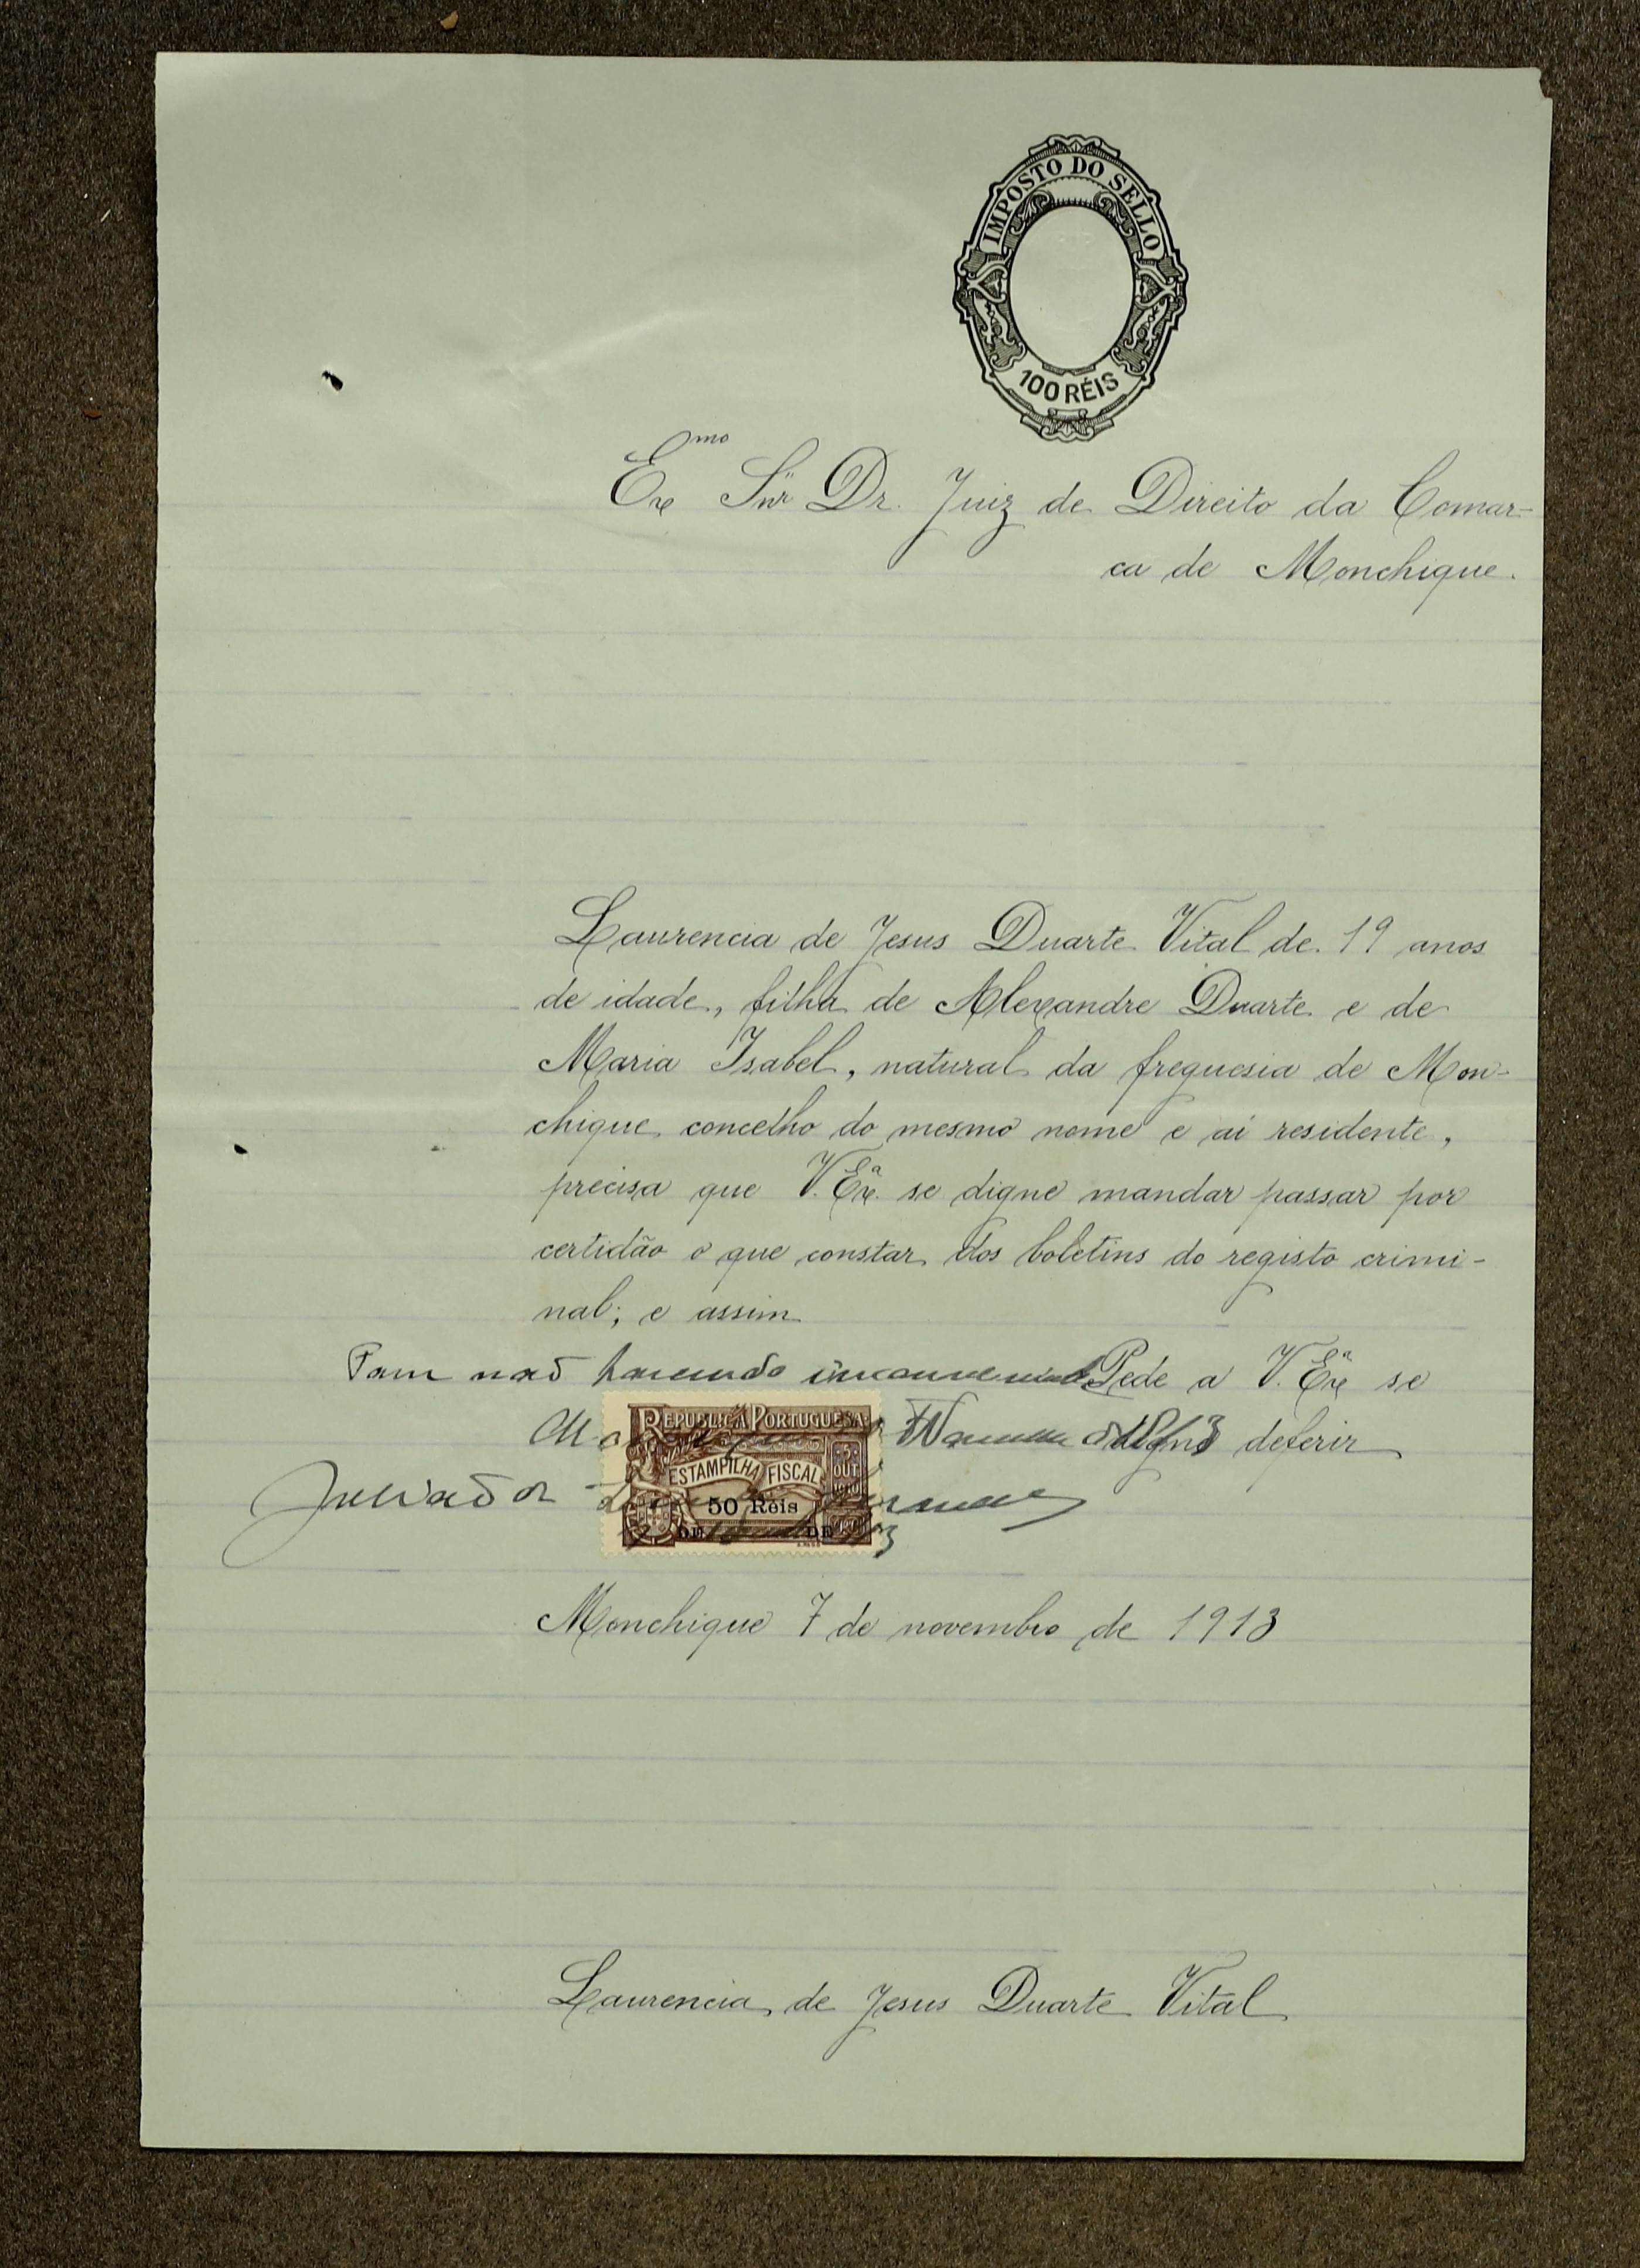 IMPOSTO DO SELLO
100 RÉIS
Exmo Snr Dr. Juiz de Direito da Comar-
ca de Monchique.
Laurencia de Jesus Duarte Vital de 19 anos
de idade, filha de Alexandre Duarte e de
Maria Isabel, natural da freguesia de Mon-
chique concelho do mesmo nome e aí residente,
precisa que V. Exª se digne mandar passar por
certidão o que constar dos boletins do registo crimi-
nal; e assim
não havendo inconveniente Pede a V. Exª se
digne deferir
REPUBLICA PORTUGUESA
ESTAMPILHA FISCAL
5 OUT 1910
50 Réis
DE DE
Monchique 7 de novembro de 1913
Laurencia de Jesus Duarte Vital